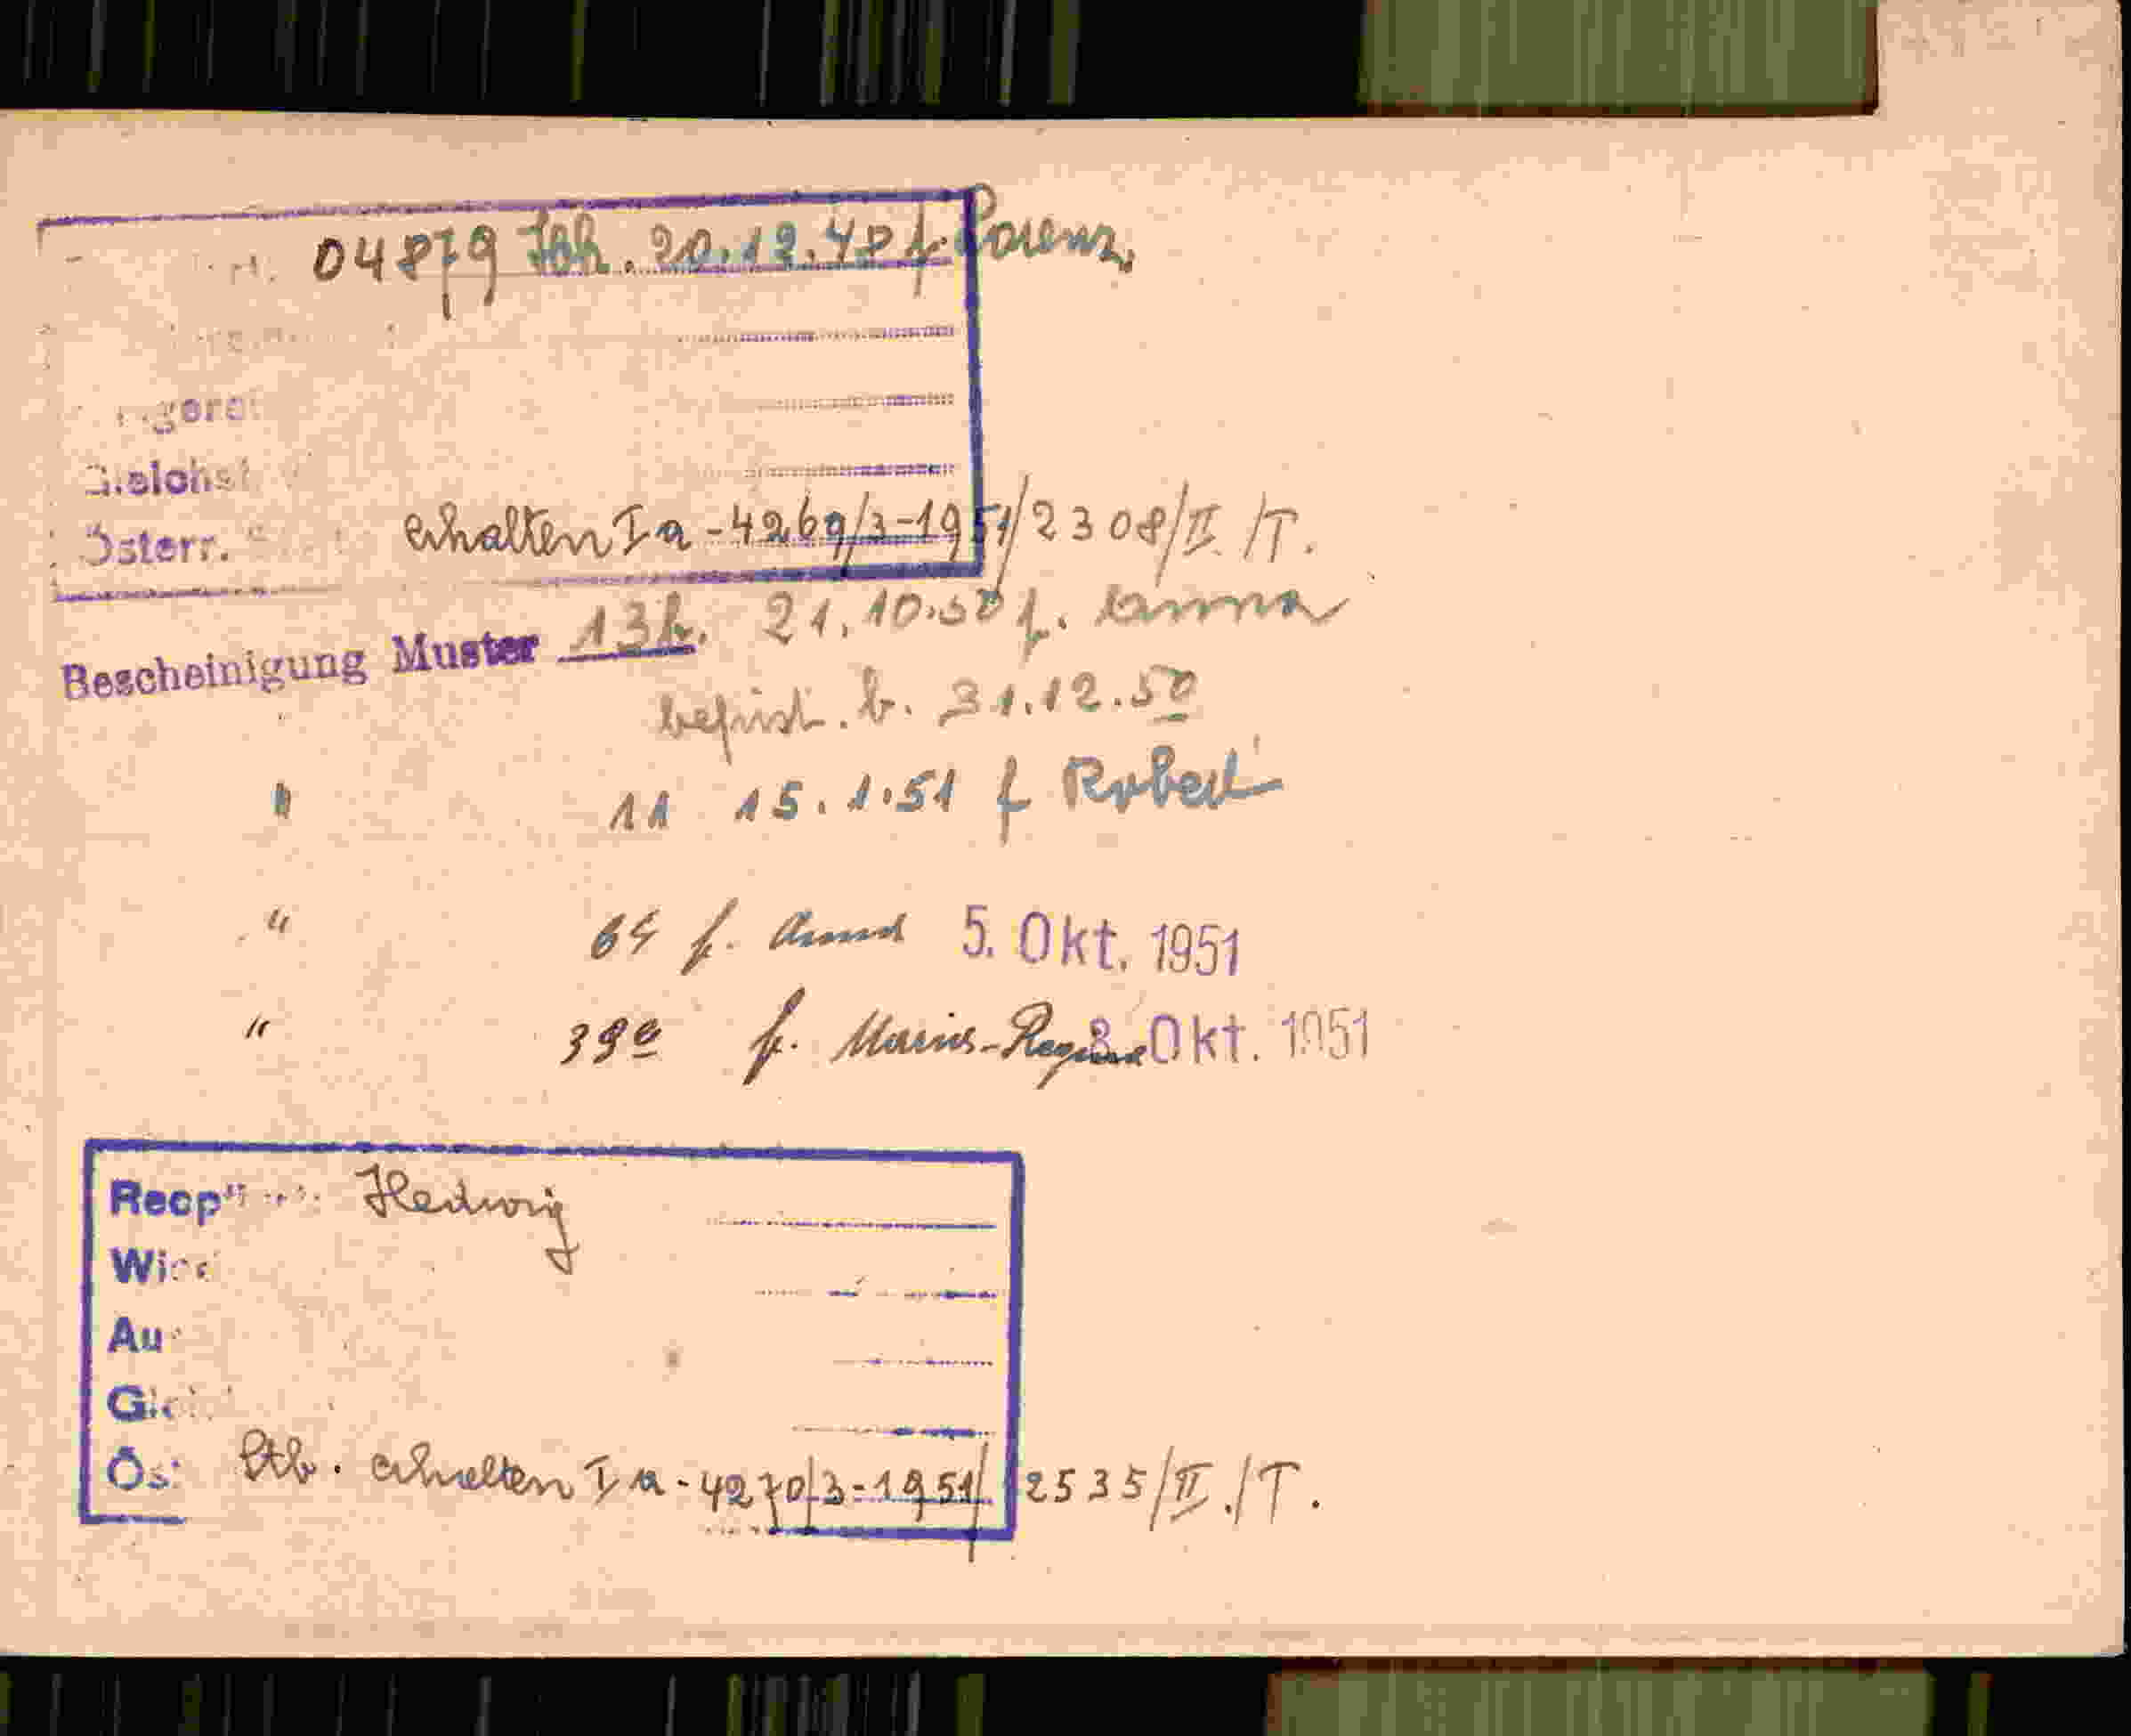 04879 Joh. 20.12.48 f. Lorenz.
Gleichst
Österr. erhalten Ia-4269/3-1951/2308/II./T.
Bescheinigung Muster 13b. 21.10.50 f. Anna
befrist. b. 31.12.50
" 11 15.1.51 f Robert
" 64 f. 5. Okt. 1951
" 39a f. Maria-Regina 8. Okt. 1951
Hedwig
Wied
Au
Gleich
Öst Stb. erhalten Ia-4270/3-1951/2535/II./T.